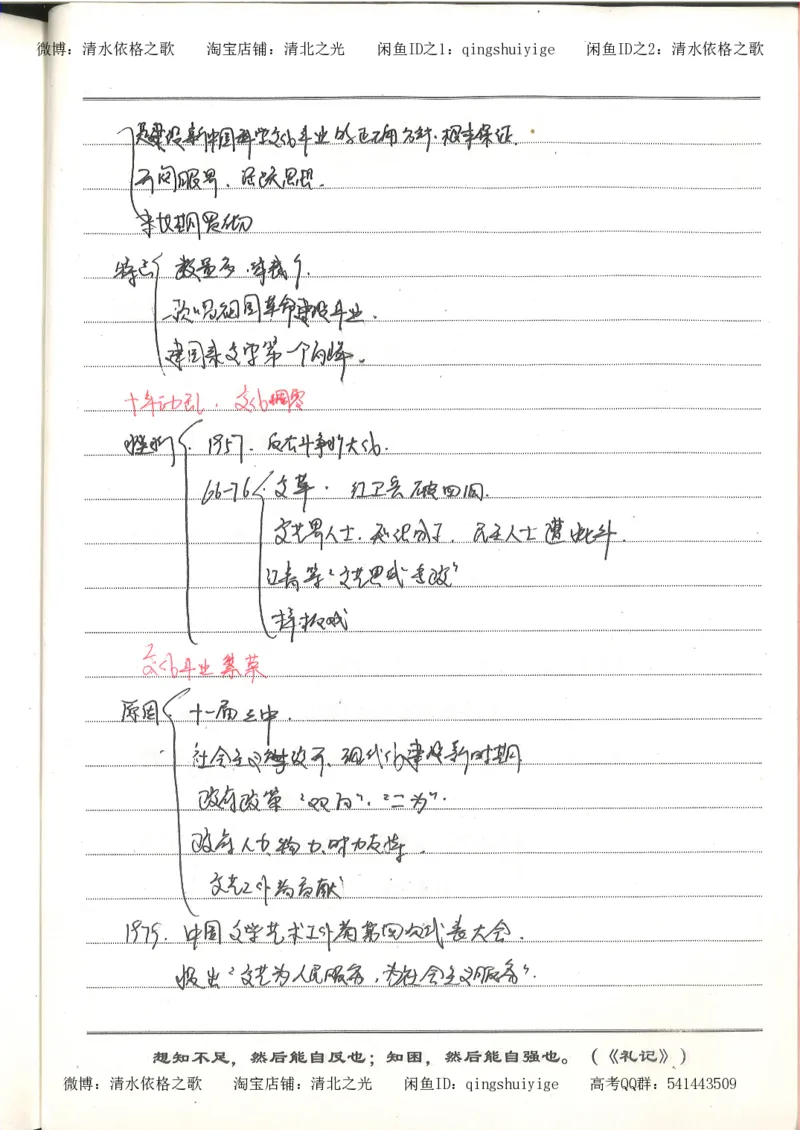 微博：清水依格之歌 淘宝店铺：清北之光 闲鱼ID之1：qingshuiyige 闲鱼ID之2：清水依格之歌
是建设新中国科学文化事业的正确方针.根本保证.
开阔眼界、活跃思想.
未长期贯彻
特点 数量多.体裁广.
歌唱祖国革命建设事业.
建国来文学第一个高峰。
十年动乱.文化凋零
1957.反右斗争扩大化.
66-76 文革. 红卫兵破四旧.
文艺界人士.知识分子.民主人士遭批斗.
江青等"文艺黑线专政"
样板戏
文化事业繁荣
原因 十一届三中.
社会主义改革开、现代化建设新时期
政府政策"双百"."二为".
政府人力、物力、财力支持.
文艺工作者贡献
1979.中国文学艺术工作者第四次代表大会.
提出"文艺为人民服务,为社会主义服务".
想知不足，然后能自反也；知困，然后能自强也。（《礼记》）
微博：清水依格之歌 淘宝店铺：清北之光 闲鱼ID：qingshuiyige 高考QQ群：541443509